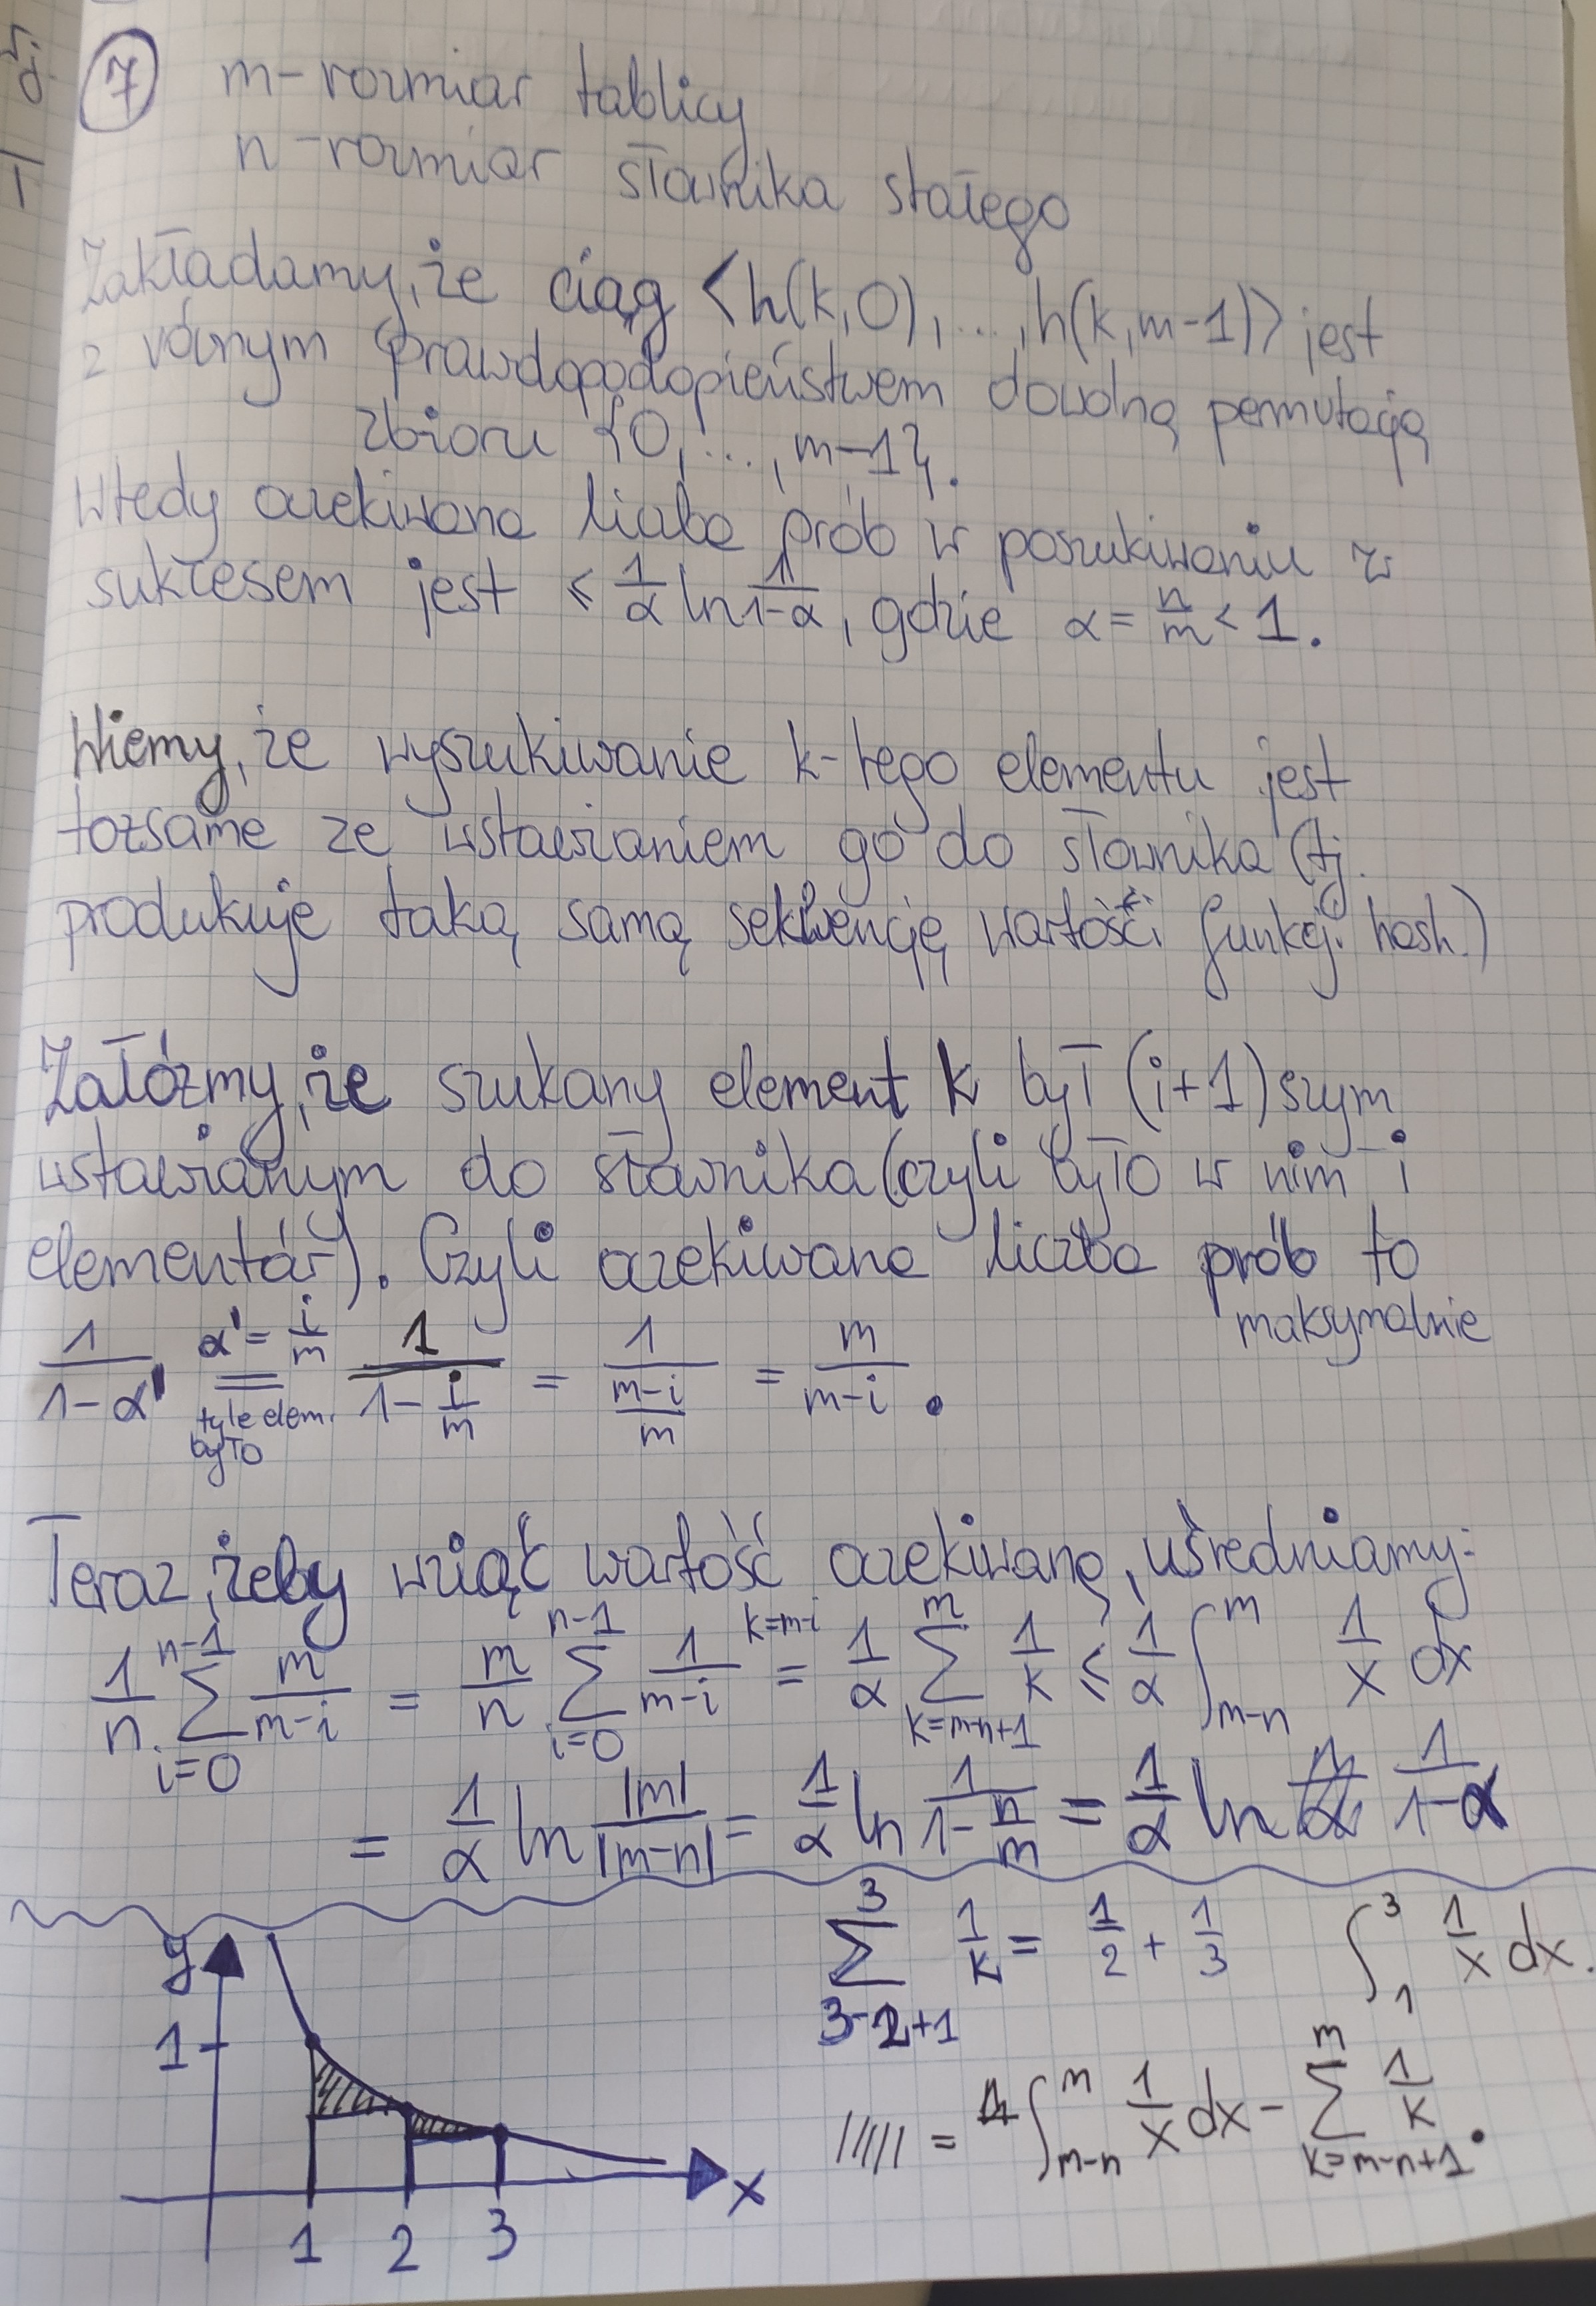 7 m-rozmiar tablicy
n-rozmiar słownika stałego
Zakładamy, że ciąg <h(k,0),...,h(k,m-1)> jest
z równym prawdopodopieństwem dowolną permutacją
zbioru {0,...,m-1}.
Wtedy oczekiwana liczba prób w poszukiwaniu z
sukcesem jest ≤ 1/α ln 1/(1-α), gdzie α = n/m < 1.
Wiemy, że wyszukiwanie k-tego elementu jest
tożsame ze wstawianiem go do słownika (tj.
produkuje taką samą sekwencję wartości funkcji hash.)
Załóżmy, że szukany element k był (i+1)szym
wstawianym do słownika (czyli było w nim i
elementów). Czyli oczekiwana liczba prób to
maksymalnie
1/(1-α') = 1/(1-i/m) = 1/((m-i)/m) = m/(m-i).
α' = i/m
tyle elem.
było
Teraz, żeby wziąć wartość oczekiwaną, uśredniamy:
1/n ∑_{i=0}^{n-1} m/(m-i) = m/n ∑_{i=0}^{n-1} 1/(m-i) =^{k=m-i} 1/α ∑_{k=m-n+1}^{m} 1/k ≤ 1/α ∫_{m-n}^{m} 1/x dx
= 1/α ln |m|/|m-n| = 1/α ln 1/(1-n/m) = 1/α ln 1/(1-α)
∑_{3-2+1}^{3} 1/k = 1/2 + 1/3 ∫_{1}^{3} 1/x dx.
///// = ∫_{m-n}^{m} 1/x dx - ∑_{k=m-n+1}^{m} 1/k.
y
1
x
1 2 3